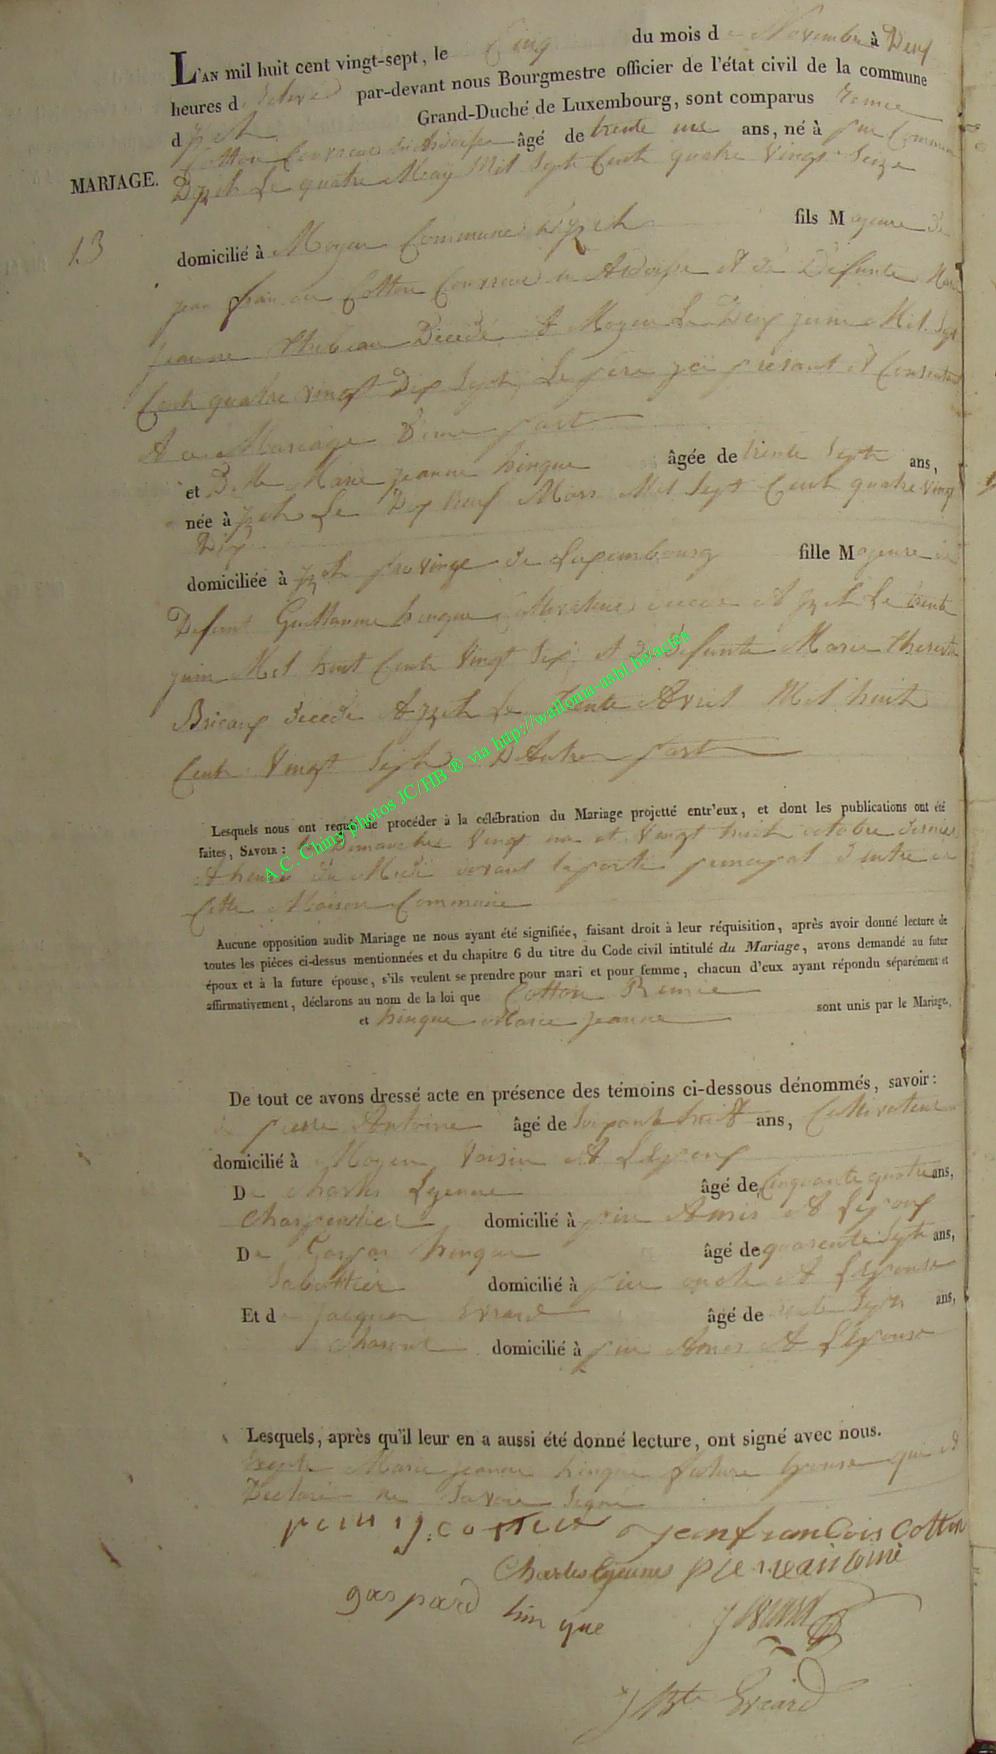 L'AN mil huit cent vingt-sept, le Cinq du mois de Novembre à Deux
heures de par-devant nous Bourgmestre officier de l'état civil de la commune
d'Yzel Grand-Duché de Luxembourg, sont comparus remie
Cotton Couvreur en Ardoise âgé de trente une ans, né à
MARIAGE.
Dyzel Le quatre May Mil Sept Cent quatre Vingt Seize
13
domicilié à Moyen Commune d'yzel fils Majeure de
jean francois Cotton Couvreur en Ardoise et de Defunte Marie
jeanne Décédé A Moyen Le Deux juin Mil Sept
Cent quatre vingt Dix Sept, Le père present et Consentant
A ce Mariage D'une part
et Marie jeanne hinque âgée de trente Sept ans,
née à yzel Le Dix neuf Mars Mil Sept Cent quatre Vingt
Dix
domiciliée à yzel province de Luxembourg fille Majeure de
Defunt Guillaume hinque Cultivateur A yzel Le trente
juin Mil huit Cent Vingt Six et de defunte Marie therese
Bricart decedé A yzel Le trente Avril Mil huit
Cent Vingt Sept D'Autre part
A.C. Chiny photos JC/HB ® via http://wallonia-asbl.be/actes
Lesquels nous ont requis de procéder à la célébration du Mariage projetté entr'eux, et dont les publications ont été
faites, SAVOIR : Dimanches Vingt un et Vingt huit octobre dernier
A heures du Midi devant la porte principal d'entrée de
Cette Maison Commune
Aucune opposition audit Mariage ne nous ayant été signifiée, faisant droit à leur réquisition, après avoir donné lecture de
toutes les pièces ci-dessus mentionnées et du chapitre 6 du titre du Code civil intitulé du Mariage, avons demandé au futur
époux et à la future épouse, s'ils veulent se prendre pour mari et pour femme, chacun d'eux ayant répondu séparément et
affirmativement, déclarons au nom de la loi que Cotton Remie
et hinque Marie jeanne sont unis par le Mariage.
De tout ce avons dressé acte en présence des témoins ci-dessous dénommés, savoir :
de pierre Antoine âgé de Soixante huit ans, Cultivateur
domicilié à Moyen Voisin A L'Epoux
De Charles Lejeune âgé de Cinquante quatre ans,
Charpentier domicilié à Amis A L'Epoux
De Gaspar hinque âgé de quarente Sept ans,
Sabottier domicilié à oncle A L'Epouse
Et de jacques Evrard âgé de trente Sept ans,
domicilié à Amis A L'Epouse
Lesquels, après qu'il leur en a aussi été donné lecture, ont signé avec nous.
Marie jeanne hinque future Epouse qui at
Declaré ne Savoir Signé
jean francois Cotton
Charles lejeunes pierre antoine
gaspard hinque J Evrard
J Bte Evrard